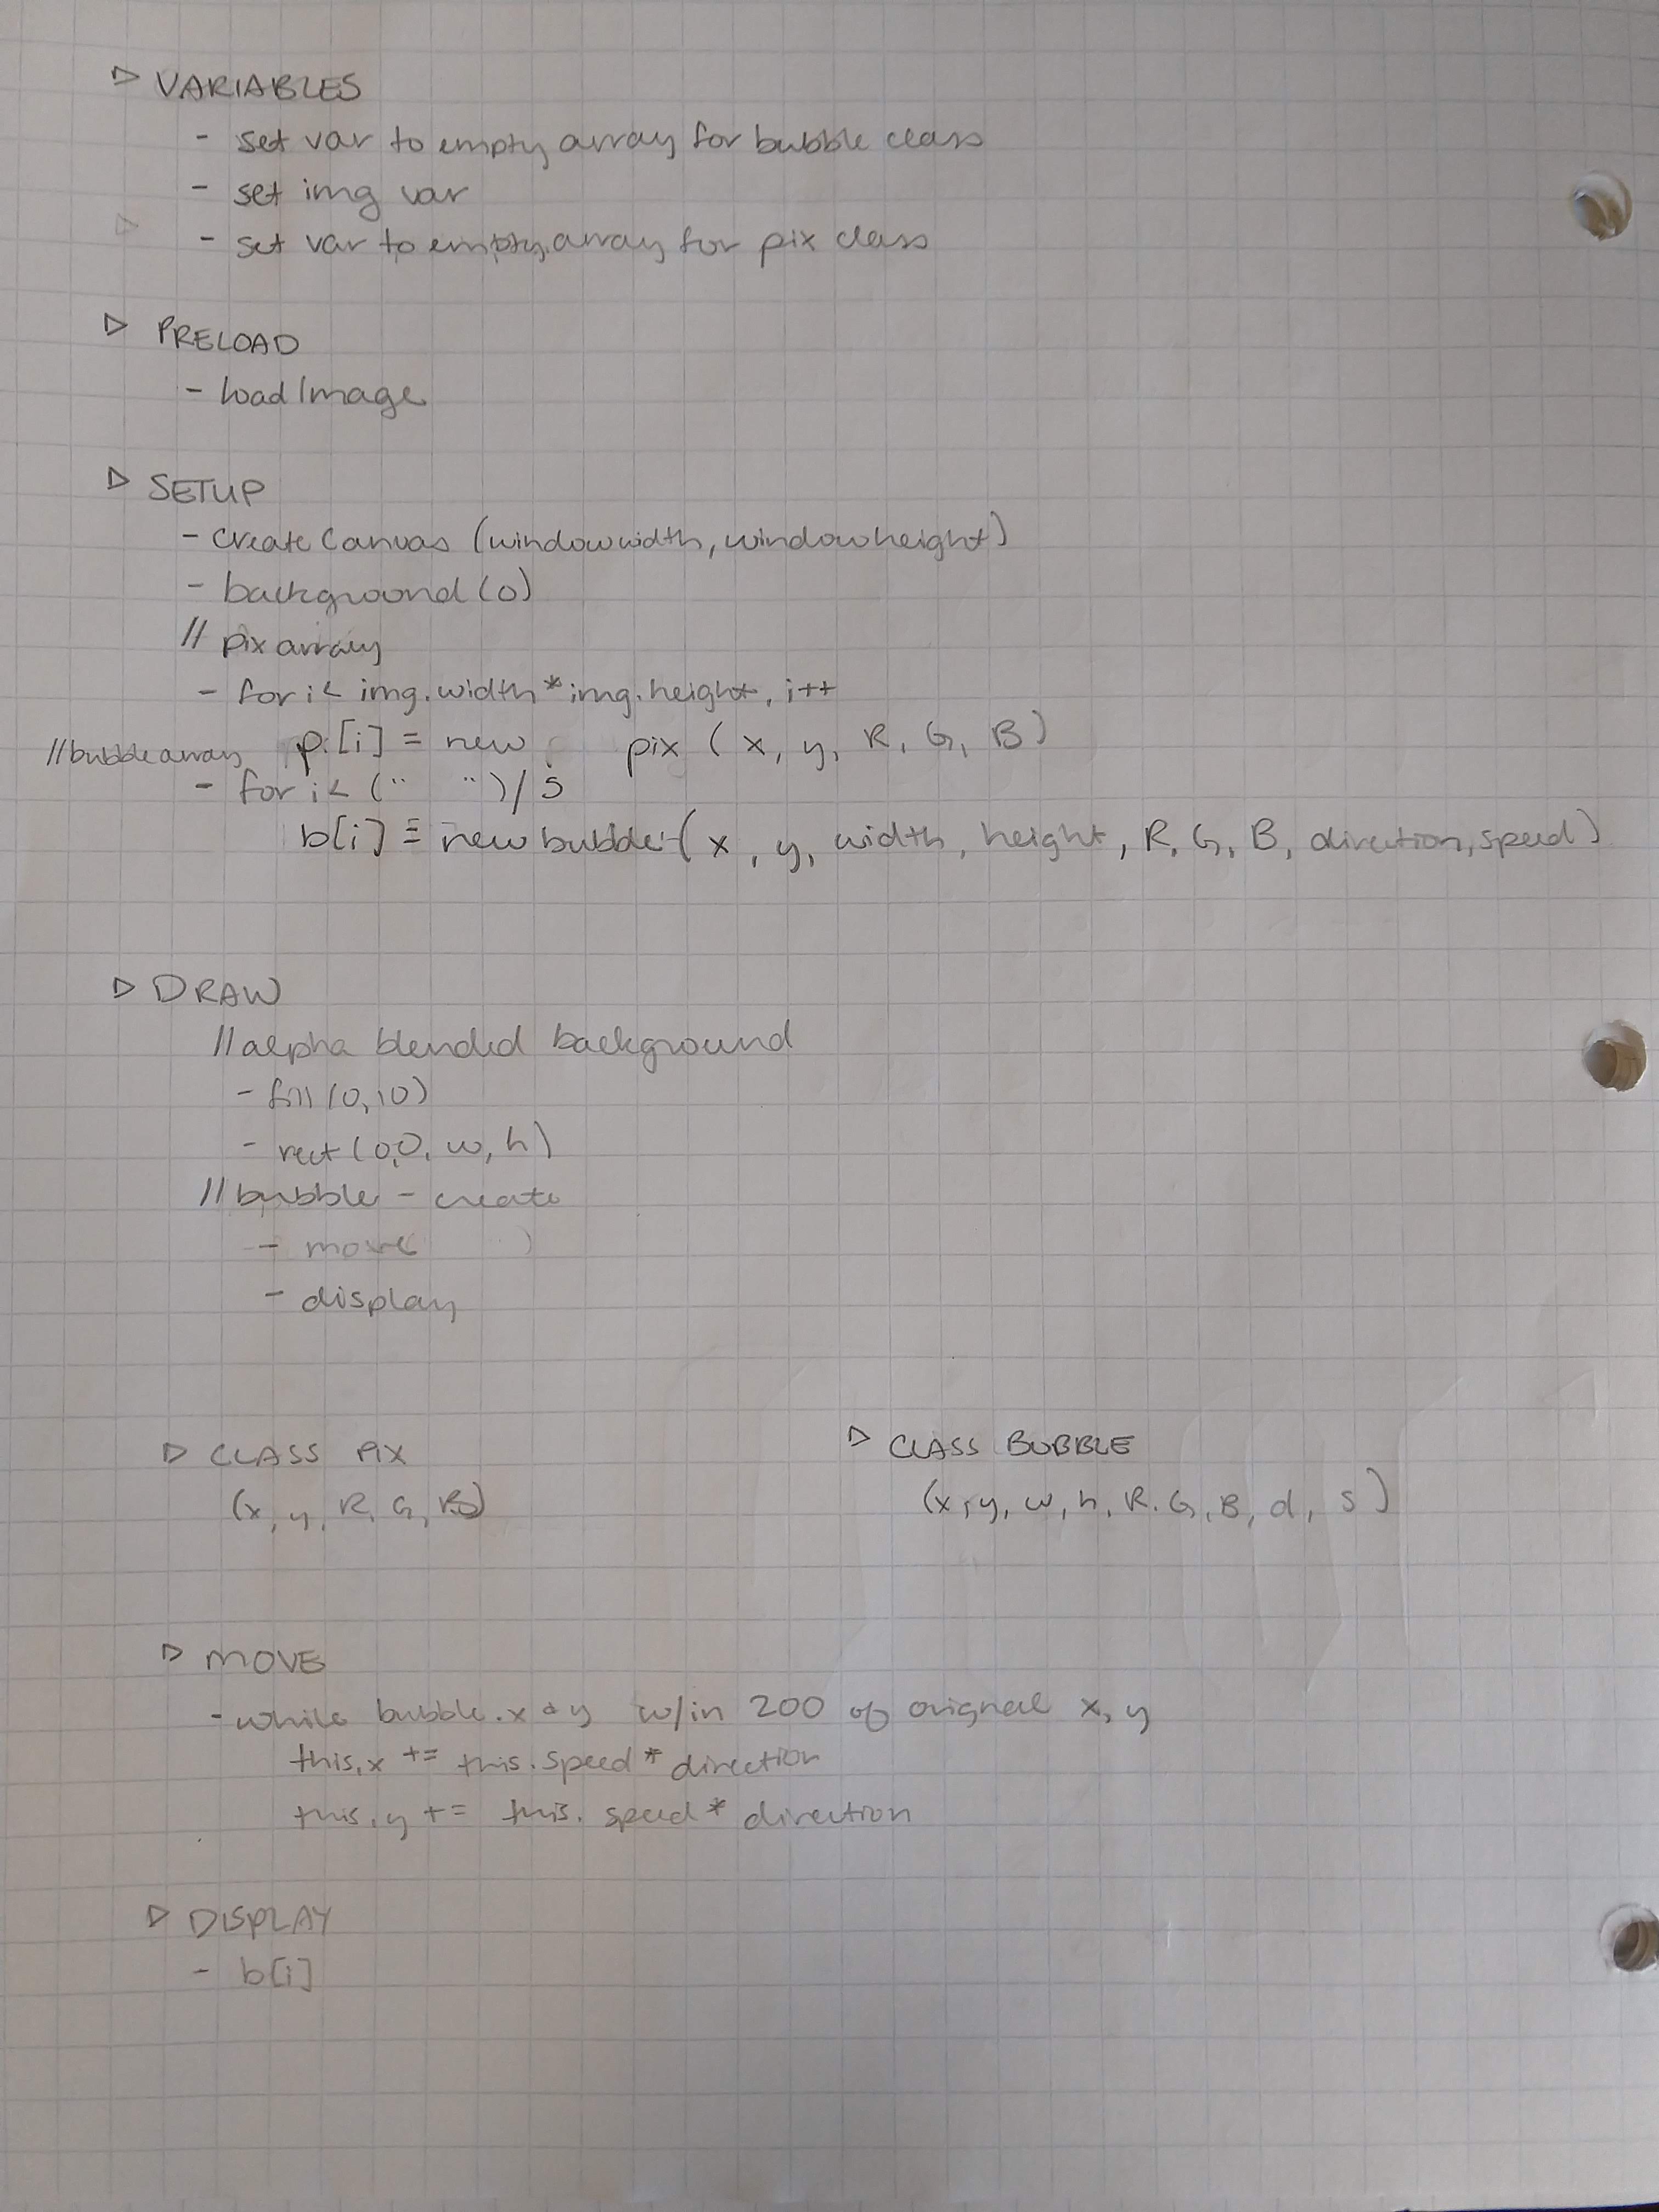 ▷ VARIABLES
- set var to empty array for bubble class
- set img var
- set var to empty array for pix class
▷ PRELOAD
- loadImage
▷ SETUP
- createCanvas (windowwidth, windowheight)
- background (0)
// pix array
- for i < img.width * img.height, i++
p.[i] = new pix (x, y, R, G, B)
// bubble array
- for i < (" ")/5
b[i] = new bubble (x, y, width, height, R, G, B, direction, speed)
▷ DRAW
// alpha blended background
- fill (0, 10)
- rect (0,0, w, h)
// bubble - create
- move )
- display
▷ CLASS PIX
(x, y, R, G, B)
▷ CLASS BUBBLE
(x, y, w, h, R. G, B, d, s)
▷ MOVE
- while bubble.x & y w/in 200 of orignal x, y
this.x += this.speed * direction
this.y += this. speed * direction
▷ DISPLAY
- b[i]